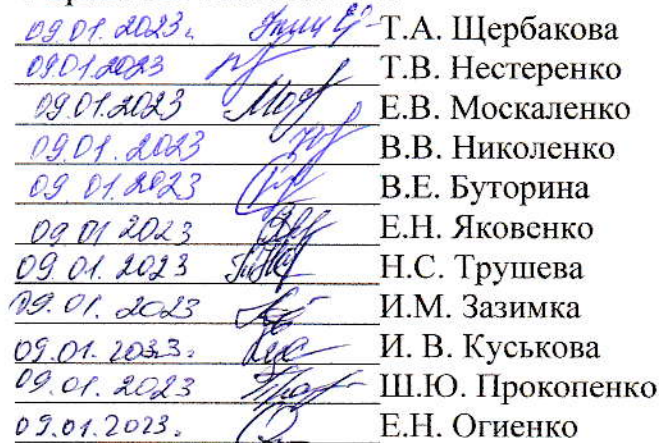 09.01.2023г. Т.А. Щербакова
09.01.2023 Т.В. Нестеренко
09.01.2023 Е.В. Москаленко
09.01.2023 В.В. Николенко
09.01.2023 В.Е. Буторина
09 01 2023 Е.Н. Яковенко
09.01.2023 Н.С. Трушева
09.01.2023 И.М. Зазимка
09.01.2023г. И. В. Куськова
09.01.2023 Ш.Ю. Прокопенко
09.01.2023. Е.Н. Огиенко